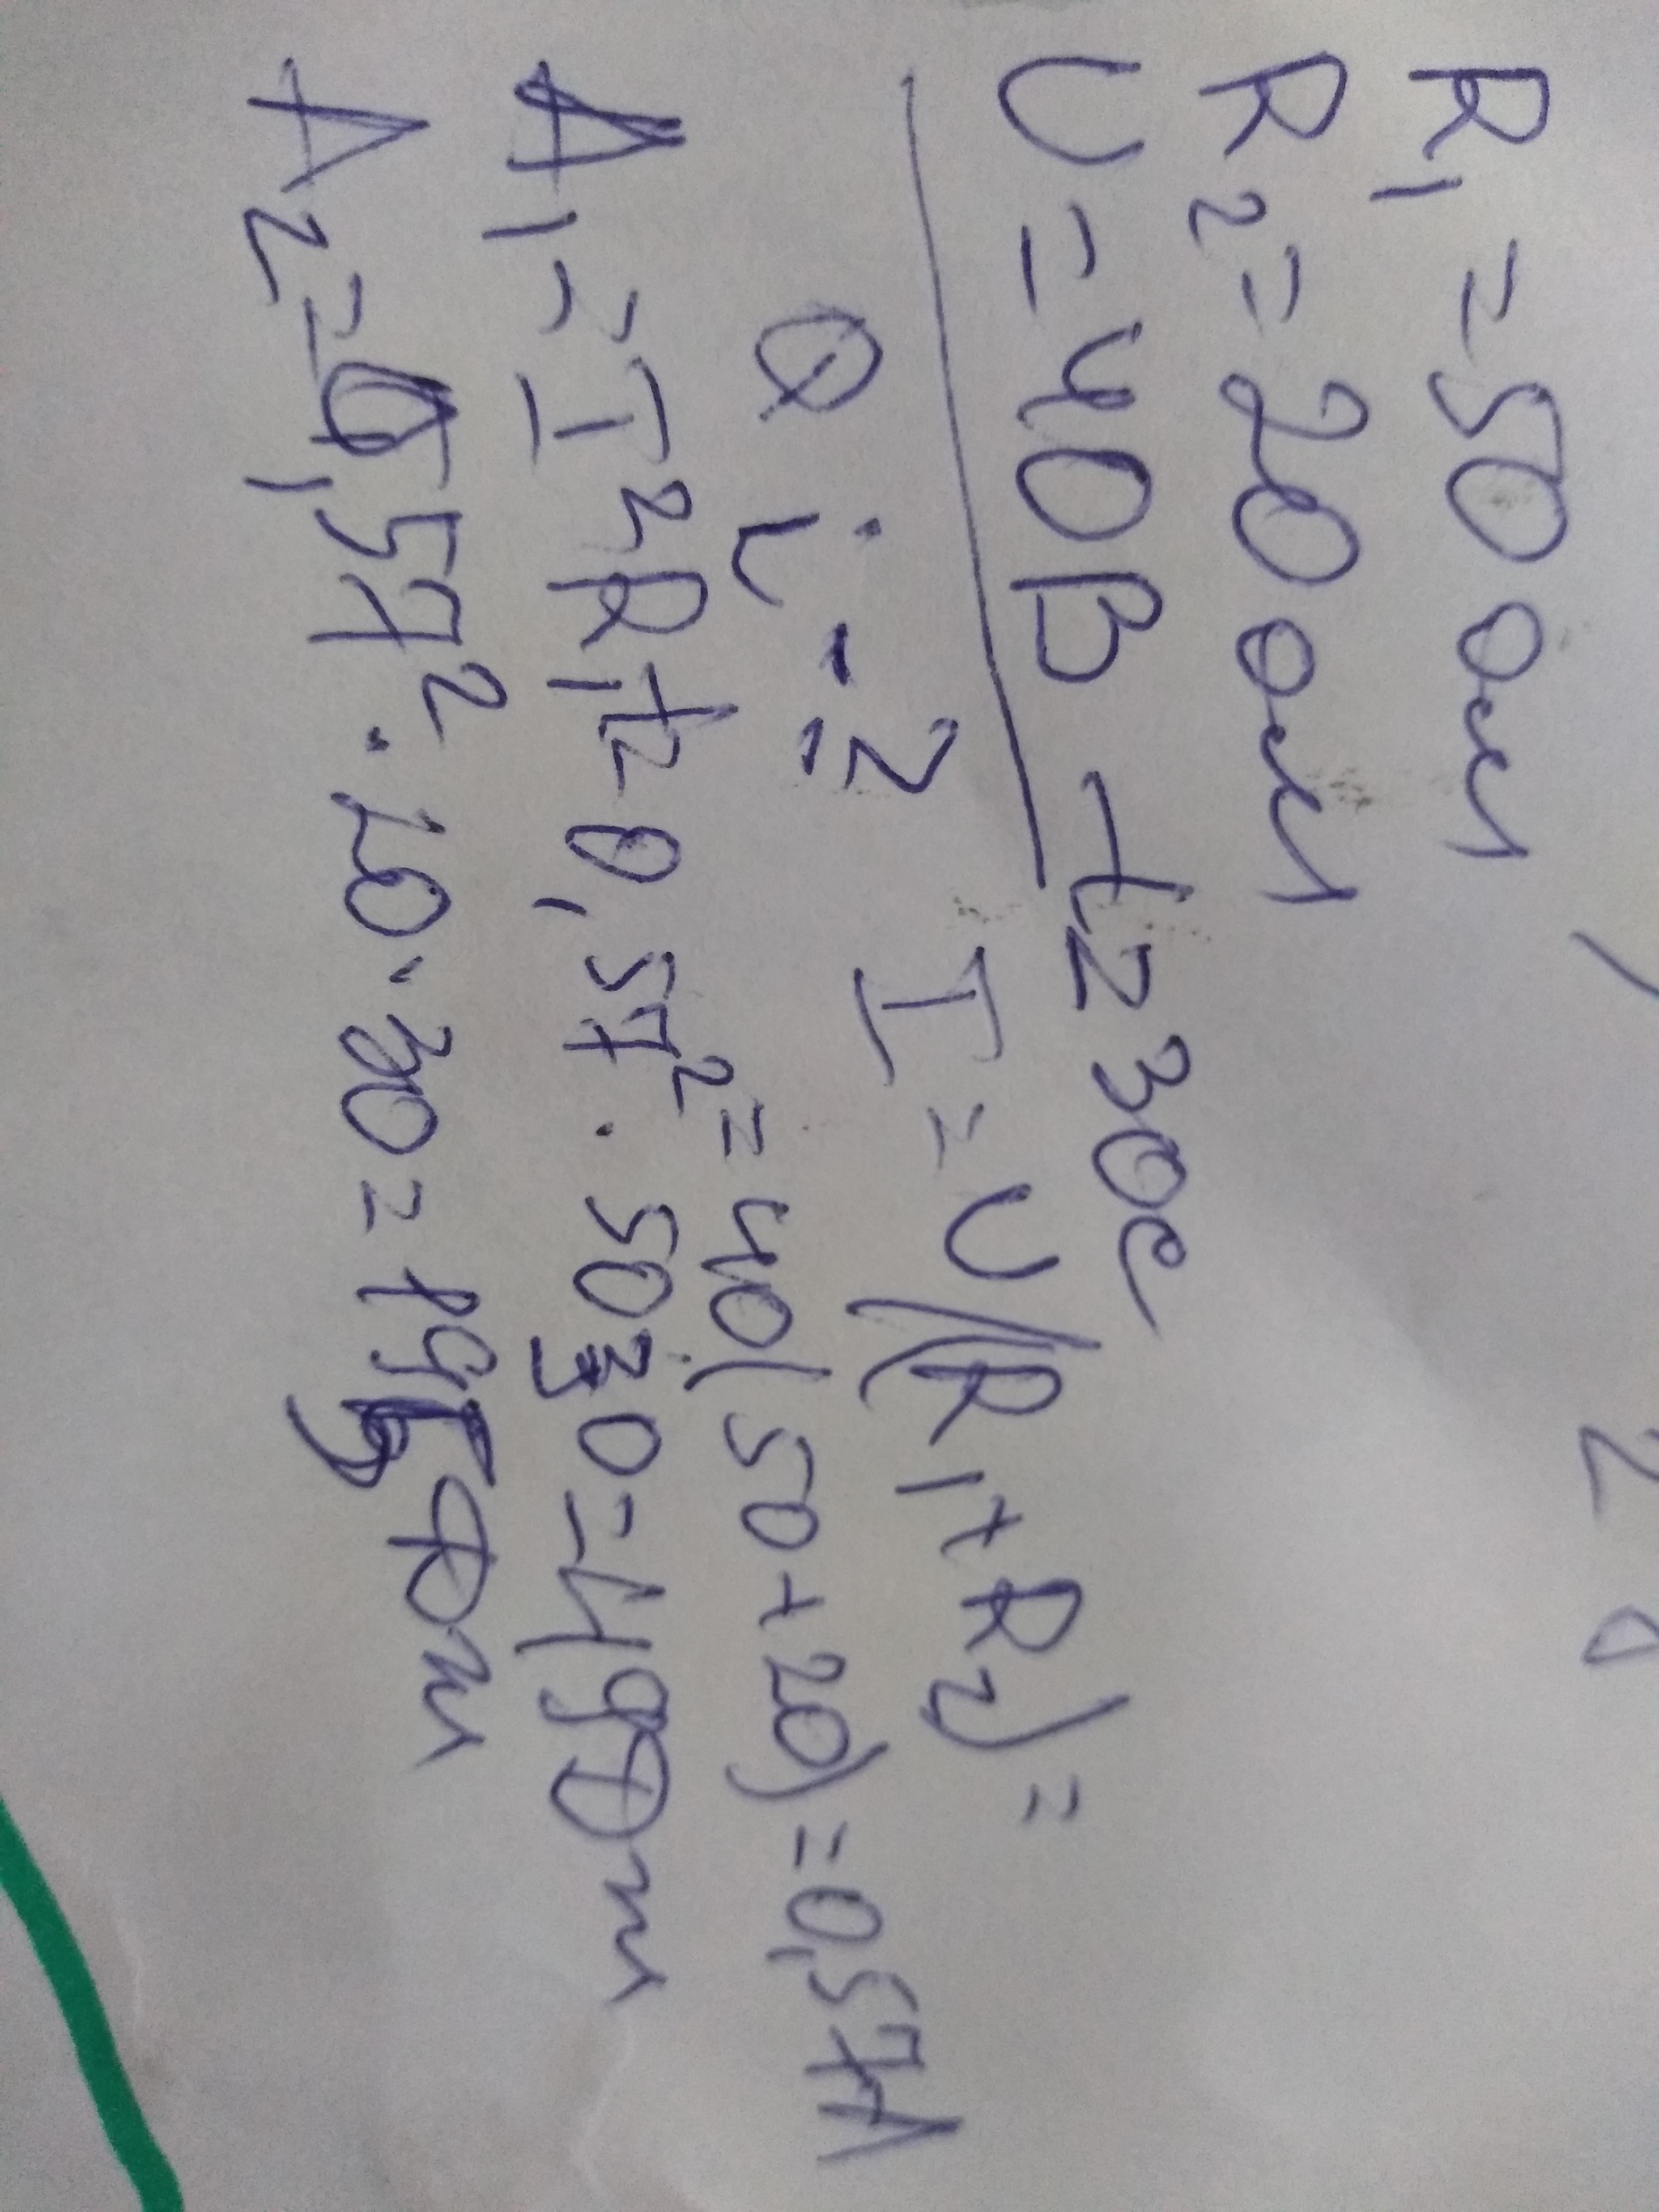 R1 = 50 Ом
R2 = 20 Ом
U = 40 В t = 30 с
Qi - ? I = U/(R1 + R2) =
= 40/(50 + 20) = 0,57 А
A1 = I²R1t = 0,57² · 50 30 = 490 Дж
A2 = 0,57² · 20 · 30 = 195 Дж